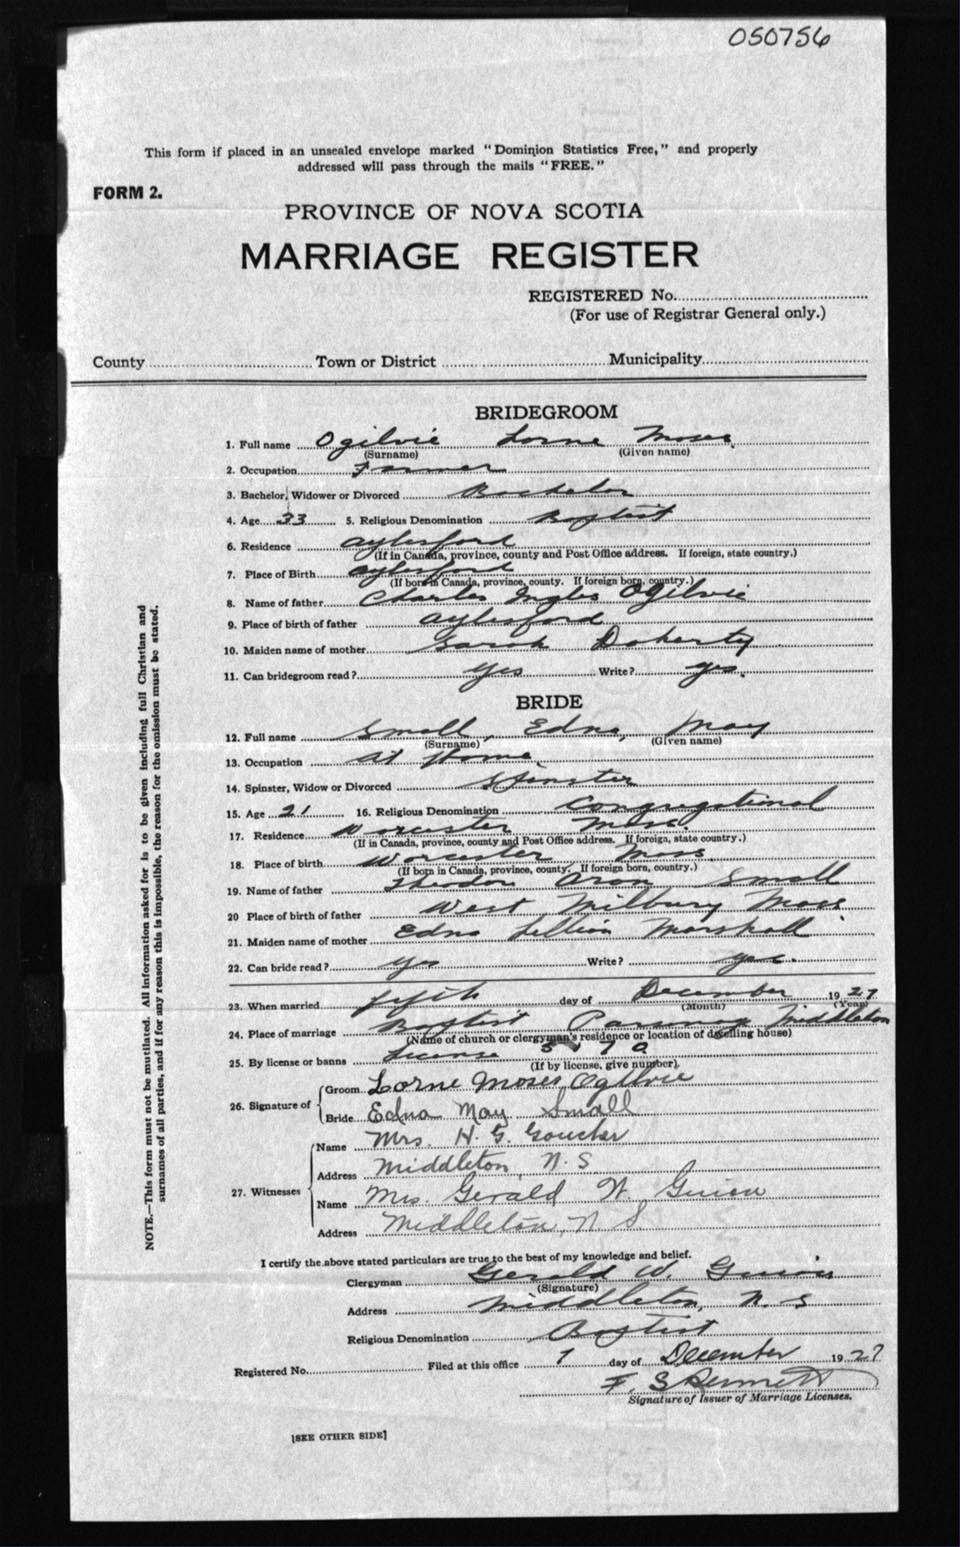 050756
This form if placed in an unsealed envelope marked "Dominion Statistics Free," and properly
addressed will pass through the mails "FREE."
FORM 2.
PROVINCE OF NOVA SCOTIA
MARRIAGE REGISTER
REGISTERED No.
(For use of Registrar General only.)
County Town or District Municipality
BRIDEGROOM
1. Full name Ogilvie Lorne Moses
(Surname) (Given name)
2. Occupation Farmer
3. Bachelor, Widower or Divorced Bachelor
4. Age 33 5. Religious Denomination Baptist
6. Residence Aylesford
(If in Canada, province, county and Post Office address. If foreign, state country.)
7. Place of Birth Aylesford
(If born in Canada, province, county. If foreign born, country.)
8. Name of father Charles Ingles Ogilvie
9. Place of birth of father Aylesford
10. Maiden name of mother Sarah Doherty
11. Can bridegroom read? yes Write? yes.
BRIDE
12. Full name Small, Edna, May
(Surname) (Given name)
13. Occupation at Home
14. Spinster, Widow or Divorced Spinster
15. Age 21 16. Religious Denomination Congregational
17. Residence Worcester Mass.
(If in Canada, province, county and Post Office address. If foreign, state country.)
18. Place of birth Worcester Mass.
(If born in Canada, province, county. If foreign born, country.)
19. Name of father Theodor Aron Small
20 Place of birth of father West Milbury Mass.
21. Maiden name of mother Edna Lillian Marshall
22. Can bride read? yes Write? yes.
23. When married fifth day of December 1927
(Month) (Year)
24. Place of marriage Baptist Parsonage Middleton
(Name of church or clergyman's residence or location of dwelling house)
25. By license or banns License
(If by license, give number)
26. Signature of
Groom Lorne Moses Ogilvie
Bride Edna May Small
27. Witnesses
Name Mrs. H. G. Goucher
Address Middleton, N.S
Name Mrs. Gerald W. Guiou
Address Middleton, N S
I certify the above stated particulars are true to the best of my knowledge and belief.
Clergyman Gerald W. Guiou
(Signature)
Address Middleton, N. S
Religious Denomination Baptist
Registered No. Filed at this office 7 day of December 1927
F. S.
Signature of Issuer of Marriage Licenses.
[SEE OTHER SIDE]
NOTE.—This form must not be mutilated. All information asked for is to be given including full Christian and
surnames of all parties, and if for any reason this is impossible, the reason for the omission must be stated.